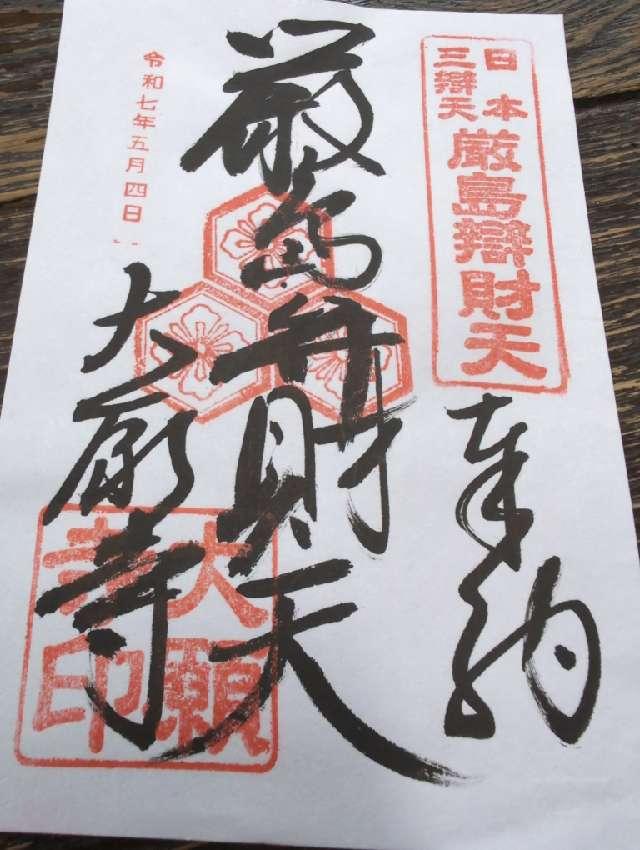 日本
三辯天
厳島辯財天
奉納
厳島弁財天
令和七年五月四日
大願寺
大願
寺印